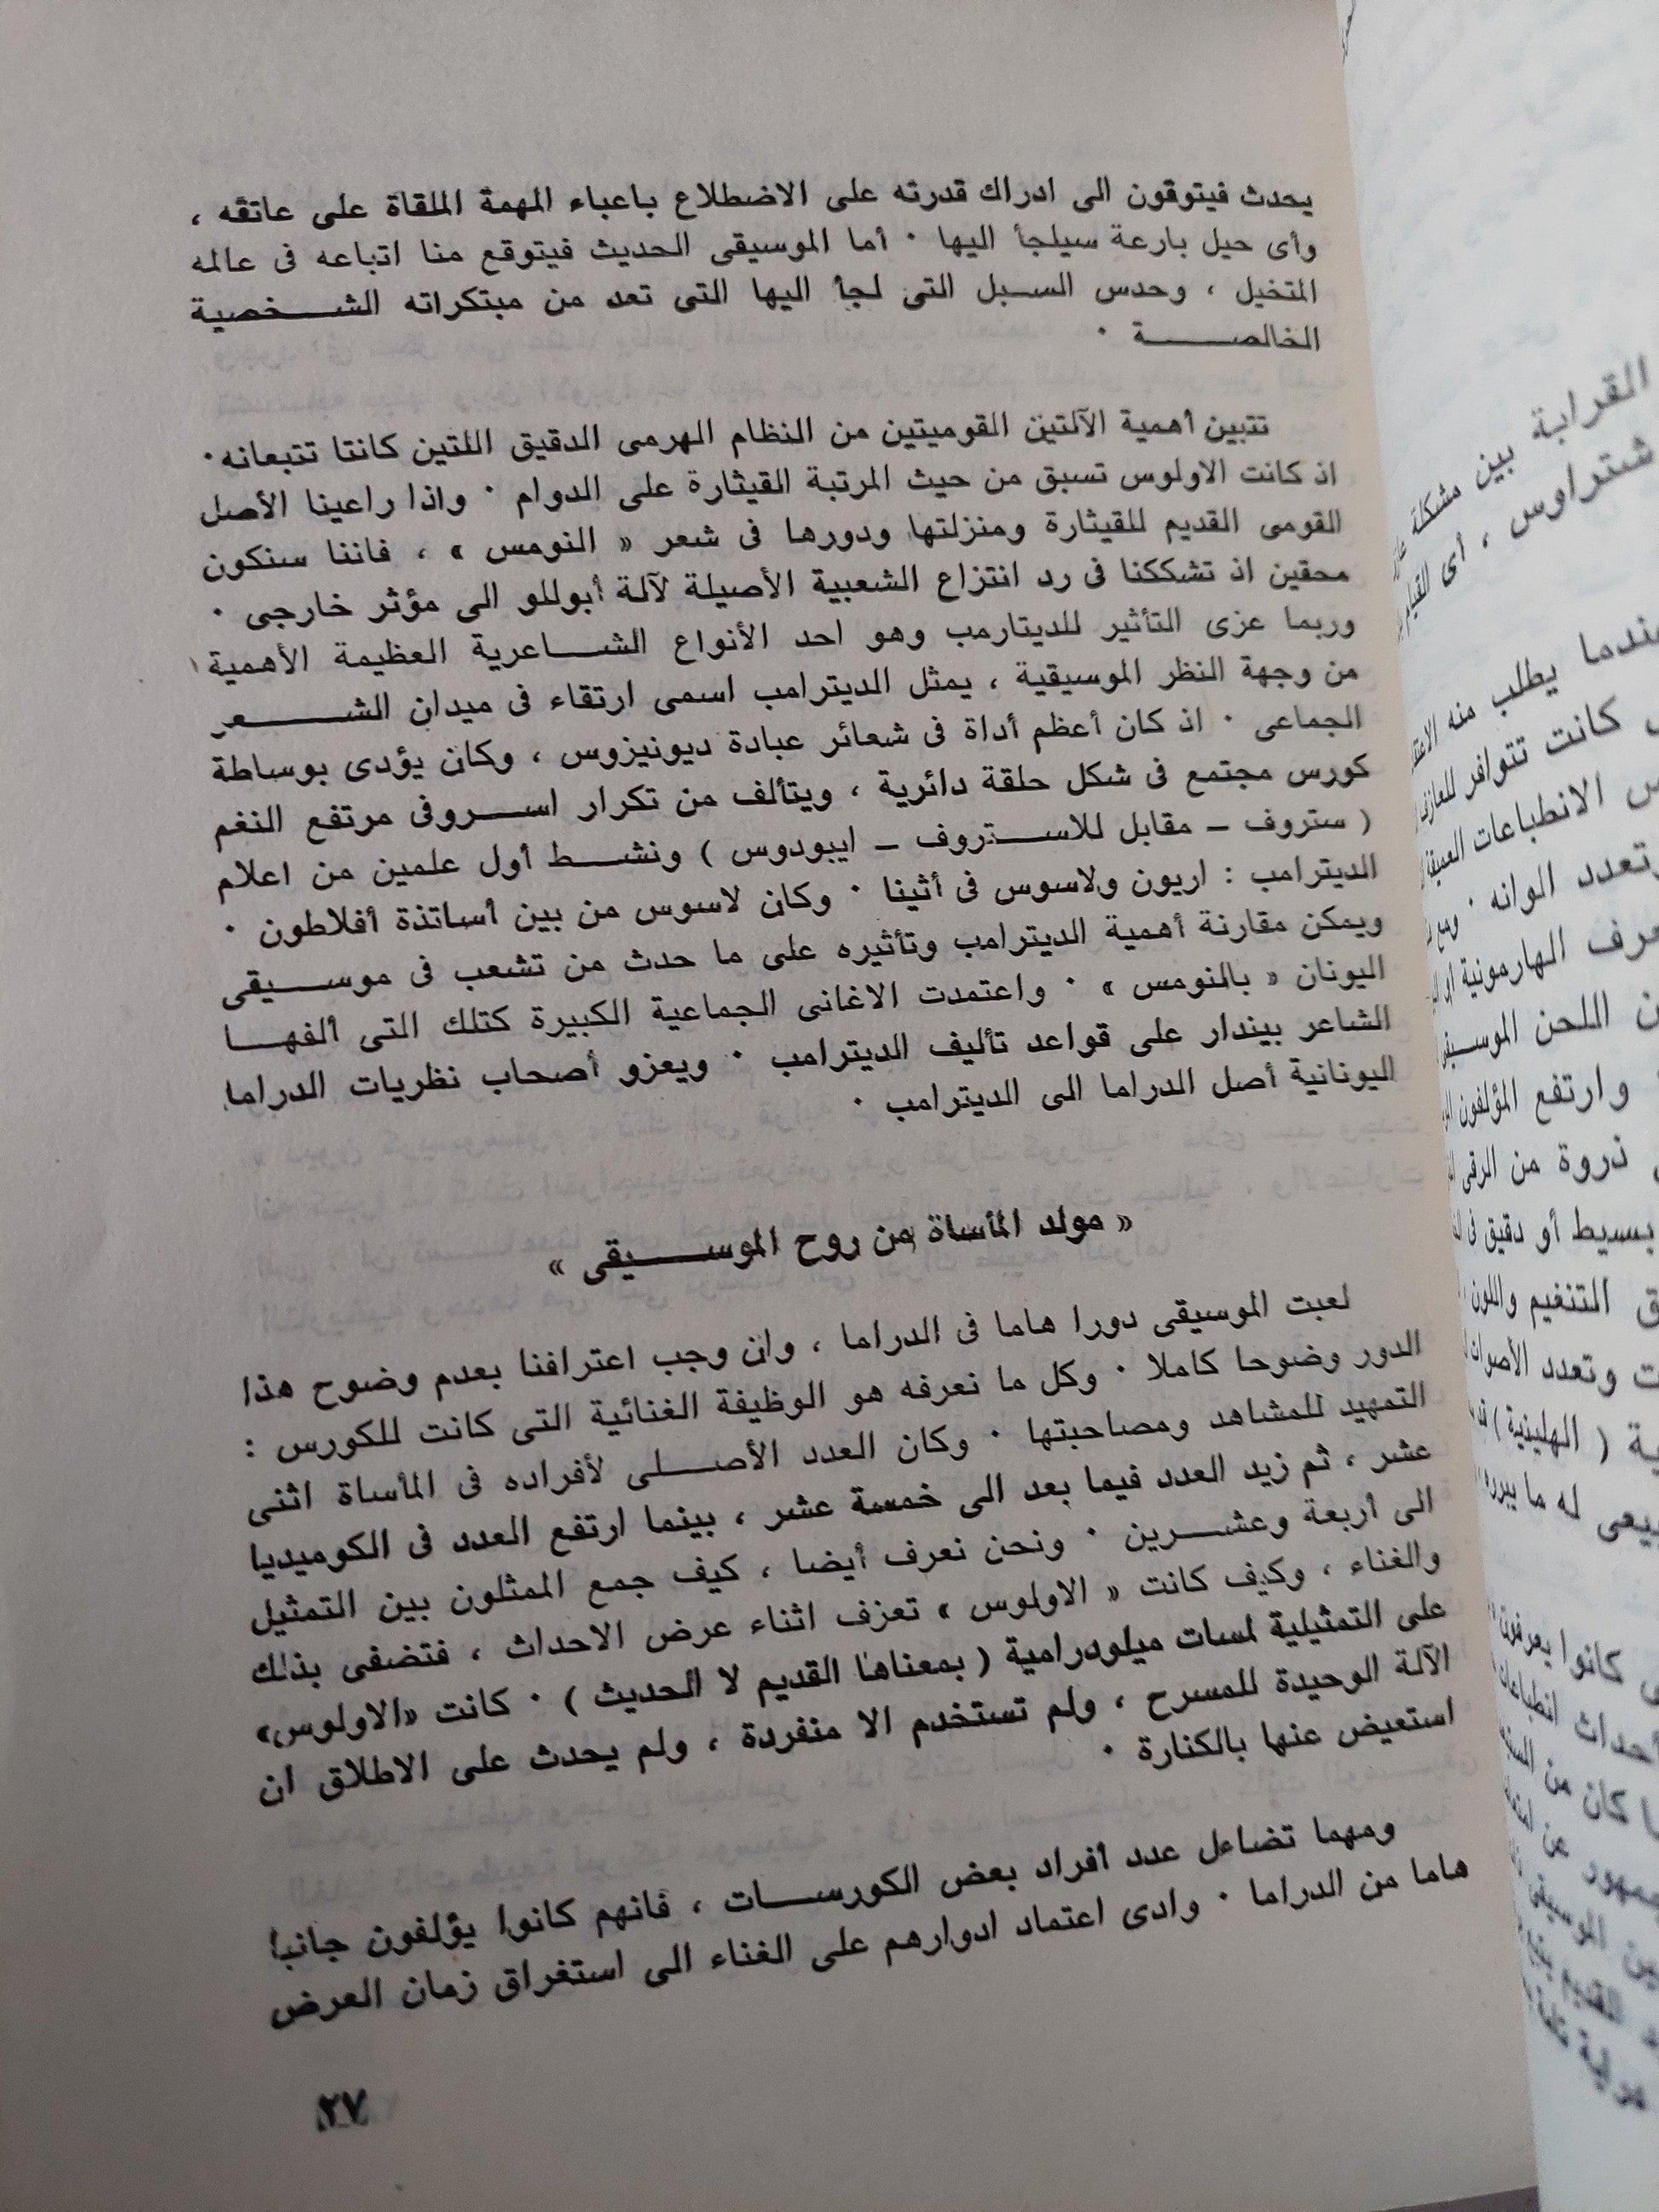 يحدث فيتوقون الى ادراك قدرته على الاضطلاع باعباء المهمة الملقاة على عاتقه ،
وأى حيل بارعة سيلجأ اليها · أما الموسيقى الحديث فيتوقع منا اتباعه فى عالمه
المتخيل ، وحدس السبل التى لجأ اليها التى تعد من مبتكراته الشخصية
الخالصة ·
تتبين أهمية الآلتين القوميتين من النظام الهرمى الدقيق اللتين كانتا تتبعانه·
اذ كانت الاولوس تسبق من حيث المرتبة القيثارة على الدوام · واذا راعينا الأصل
القومى القديم للقيثارة ومنزلتها ودورها فى شعر « النومس » ، فاننا سنكون
محقين اذ تشككنا فى رد انتزاع الشعبية الأصيلة لآلة أبوللو الى مؤثر خارجى ·
وربما عزى التأثير للديتارمب وهو احد الأنواع الشاعرية العظيمة الأهمية
من وجهة النظر الموسيقية ، يمثل الديترامب اسمى ارتقاء فى ميدان الشعر
الجماعى · اذ كان أعظم أداة فى شعائر عبادة ديونيزوس ، وكان يؤدى بوساطة
كورس مجتمع فى شكل حلقة دائرية ، ويتألف من تكرار اسروفى مرتفع النغم
( ستروف – مقابل للاستروف – ايبودوس ) ونشط أول علمين من اعلام
الديترامب : اريون ولاسوس فى أثينا · وكان لاسوس من بين أساتذة أفلاطون ·
ويمكن مقارنة أهمية الديترامب وتأثيره على ما حدث من تشعب فى موسيقى
اليونان « بالنومس » · واعتمدت الاغانى الجماعية الكبيرة كتلك التى ألفها
الشاعر بيندار على قواعد تأليف الديترامب · ويعزو أصحاب نظريات الدراما
اليونانية أصل الدراما الى الديترامب ·
« مولد المأساة من روح الموسيقى »
لعبت الموسيقى دورا هاما فى الدراما ، وان وجب اعترافنا بعدم وضوح هذا
الدور وضوحا كاملا · وكل ما نعرفه هو الوظيفة الغنائية التى كانت للكورس :
التمهيد للمشاهد ومصاحبتها · وكان العدد الأصلى لأفراده فى المأساة اثنى
عشر ، ثم زيد العدد فيما بعد الى خمسة عشر ، بينما ارتفع العدد فى الكوميديا
الى أربعة وعشرين · ونحن نعرف أيضا ، كيف جمع الممثلون بين التمثيل
والغناء ، وكيف كانت « الاولوس » تعزف اثناء عرض الاحداث ، فتضفى بذلك
على التمثيلية لمسات ميلودرامية ( بمعناها القديم لا الحديث ) · كانت «الاولوس»
الآلة الوحيدة للمسرح ، ولم تستخدم الا منفردة ، ولم يحدث على الاطلاق ان
استعيض عنها بالكنارة ·
ومهما تضاءل عدد أفراد بعض الكورسات ، فانهم كانوا يؤلفون جانبا
هاما من الدراما · وادى اعتماد ادوارهم على الغناء الى استغراق زمان العرض
٢٧
القرابة بين مشكلة
شتراوس ، أى القيام
يطلب منه
كانت تتوافر للعازف
الانطباعات العميقة
تعدد الوانه ·
الهارمونية
اللحن
وارتفع المؤلفون
ذروة من الرقى
بسيط أو دقيق فى
التنغيم واللون
وتعدد الأصوات
( الهلينية )
له ما يبرره
كانوا يعرفون
انطباعات
كان من